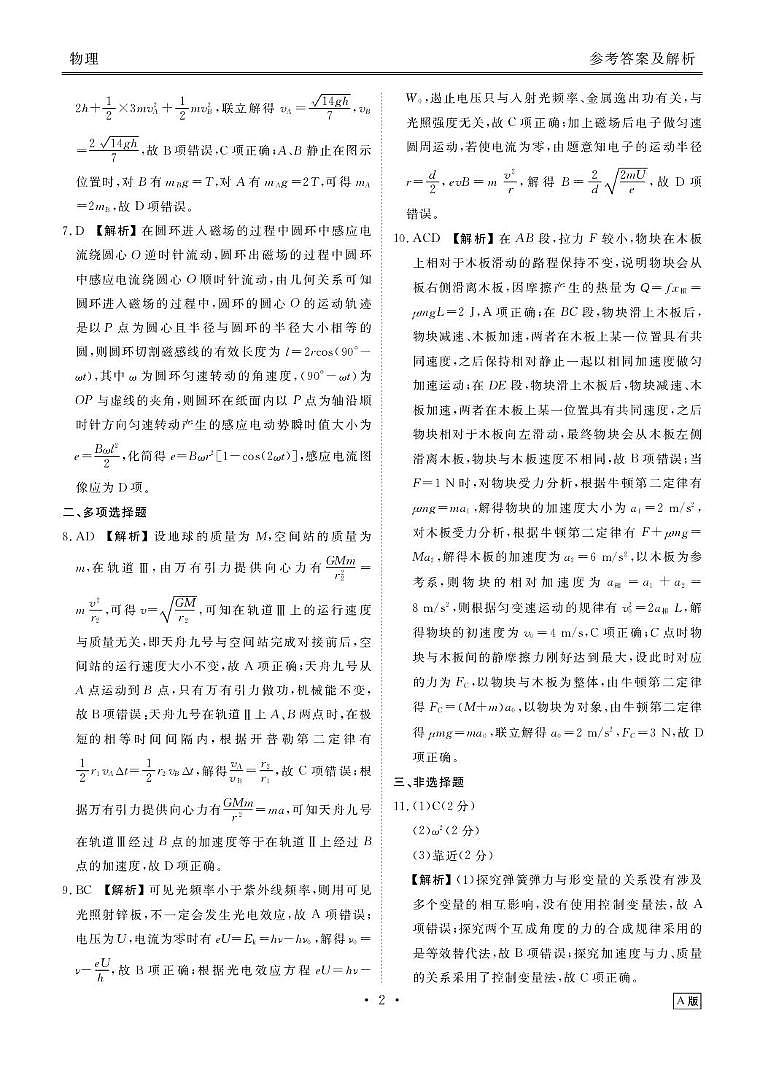 物理
参考答案及解析
2h+1/2×3mv_A²+1/2mv_B²,联立解得 v_A=√(14gh)/7,v_B
=2√(14gh)/7,故 B 项错误,C 项正确;A、B 静止在图示
位置时,对 B 有 m_Bg=T,对 A 有 m_Ag=2T,可得 m_A
=2m_B,故 D 项错误。
7.D 【解析】在圆环进入磁场的过程中圆环中感应电
流绕圆心 O 逆时针流动,圆环出磁场的过程中圆环
中感应电流绕圆心 O 顺时针流动,由几何关系可知
圆环进入磁场的过程中,圆环的圆心 O 的运动轨迹
是以 P 点为圆心且半径与圆环的半径大小相等的
圆,则圆环切割磁感线的有效长度为 l=2rcos(90°-
ωt),其中 ω 为圆环匀速转动的角速度,(90°-ωt)为
OP 与虚线的夹角,则圆环在纸面内以 P 点为轴沿顺
时针方向匀速转动产生的感应电动势瞬时值大小为
e=Bωl²/2,化简得 e=Bωr²[1-cos(2ωt)],感应电流图
像应为 D 项。
二、多项选择题
8.AD 【解析】设地球的质量为 M,空间站的质量为
m,在轨道 Ⅲ,由万有引力提供向心力有 GMm/r₂²=
m v²/r₂,可得 v=√(GM/r₂),可知在轨道Ⅲ上的运行速度
与质量无关,即天舟九号与空间站完成对接前后,空
间站的运行速度大小不变,故 A 项正确;天舟九号从
A 点运动到 B 点,只有万有引力做功,机械能不变,
故 B 项错误;天舟九号在轨道Ⅱ上 A、B 两点时,在极
短的相等时间间隔内,根据开普勒第二定律有
1/2 r₁v_AΔt=1/2 r₂v_BΔt,解得 v_A/v_B=r₂/r₁,故 C 项错误;根
据万有引力提供向心力有 GMm/r²=ma,可知天舟九号
在轨道Ⅲ经过 B 点的加速度等于在轨道Ⅱ上经过 B
点的加速度,故 D 项正确。
9.BC 【解析】可见光频率小于紫外线频率,则用可见
光照射锌板,不一定会发生光电效应,故 A 项错误;
电压为 U,电流为零时有 eU=E_k=hν-hν₀,解得 ν₀=
ν-eU/h,故 B 项正确;根据光电效应方程 eU=hν-
W₀,遏止电压只与入射光频率、金属逸出功有关,与
光照强度无关,故 C 项正确;加上磁场后电子做匀速
圆周运动,若使电流为零,由题意知电子的运动半径
r=d/2,evB=m v²/r,解得 B=2/d √(2mU/e),故 D 项
错误。
10.ACD 【解析】在 AB 段,拉力 F 较小,物块在木板
上相对于木板滑动的路程保持不变,说明物块会从
板右侧滑离木板,因摩擦产生的热量为 Q=fx相=
μmgL=2 J,A 项正确;在 BC 段,物块滑上木板后,
物块减速、木板加速,两者在木板上某一位置具有共
同速度,之后保持相对静止一起以相同加速度做匀
加速运动;在 DE 段,物块滑上木板后,物块减速、木
板加速,两者在木板上某一位置具有共同速度,之后
物块相对于木板向左滑动,最终物块会从木板左侧
滑离木板,物块与木板速度不相同,故 B 项错误;当
F=1 N时,对物块受力分析,根据牛顿第二定律有
μmg=ma₁,解得物块的加速度大小为 a₁=2 m/s²,
对木板受力分析,根据牛顿第二定律有 F+μmg=
Ma₂,解得木板的加速度为 a₂=6 m/s²,以木板为参
考系,则物块的相对加速度为 a相=a₁+a₂=
8 m/s²,则根据匀变速运动的规律有 v₀²=2a相L,解
得物块的初速度为 v₀=4 m/s,C 项正确;C 点时物
块与木板间的静摩擦力刚好达到最大,设此时对应
的力为 F_C,以物块与木板为整体,由牛顿第二定律
得 F_C=(M+m)a₀,以物块为对象,由牛顿第二定律
得 μmg=ma₀,联立解得 a₀=2 m/s²,F_C=3 N,故 D
项正确。
三、非选择题
11.(1)C(2 分)
(2)ω²(2 分)
(3)靠近(2 分)
【解析】(1)探究弹簧弹力与形变量的关系没有涉及
多个变量的相互影响,没有使用控制变量法,故 A
项错误;探究两个互成角度的力的合成规律采用的
是等效替代法,故 B 项错误;探究加速度与力、质量
的关系采用了控制变量法,故 C 项正确。
• 2 •
A 版